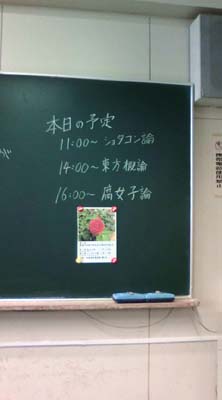 本日の予定
11:00〜 ショタコン論
14:00〜 東方概論
16:00〜 腐女子論